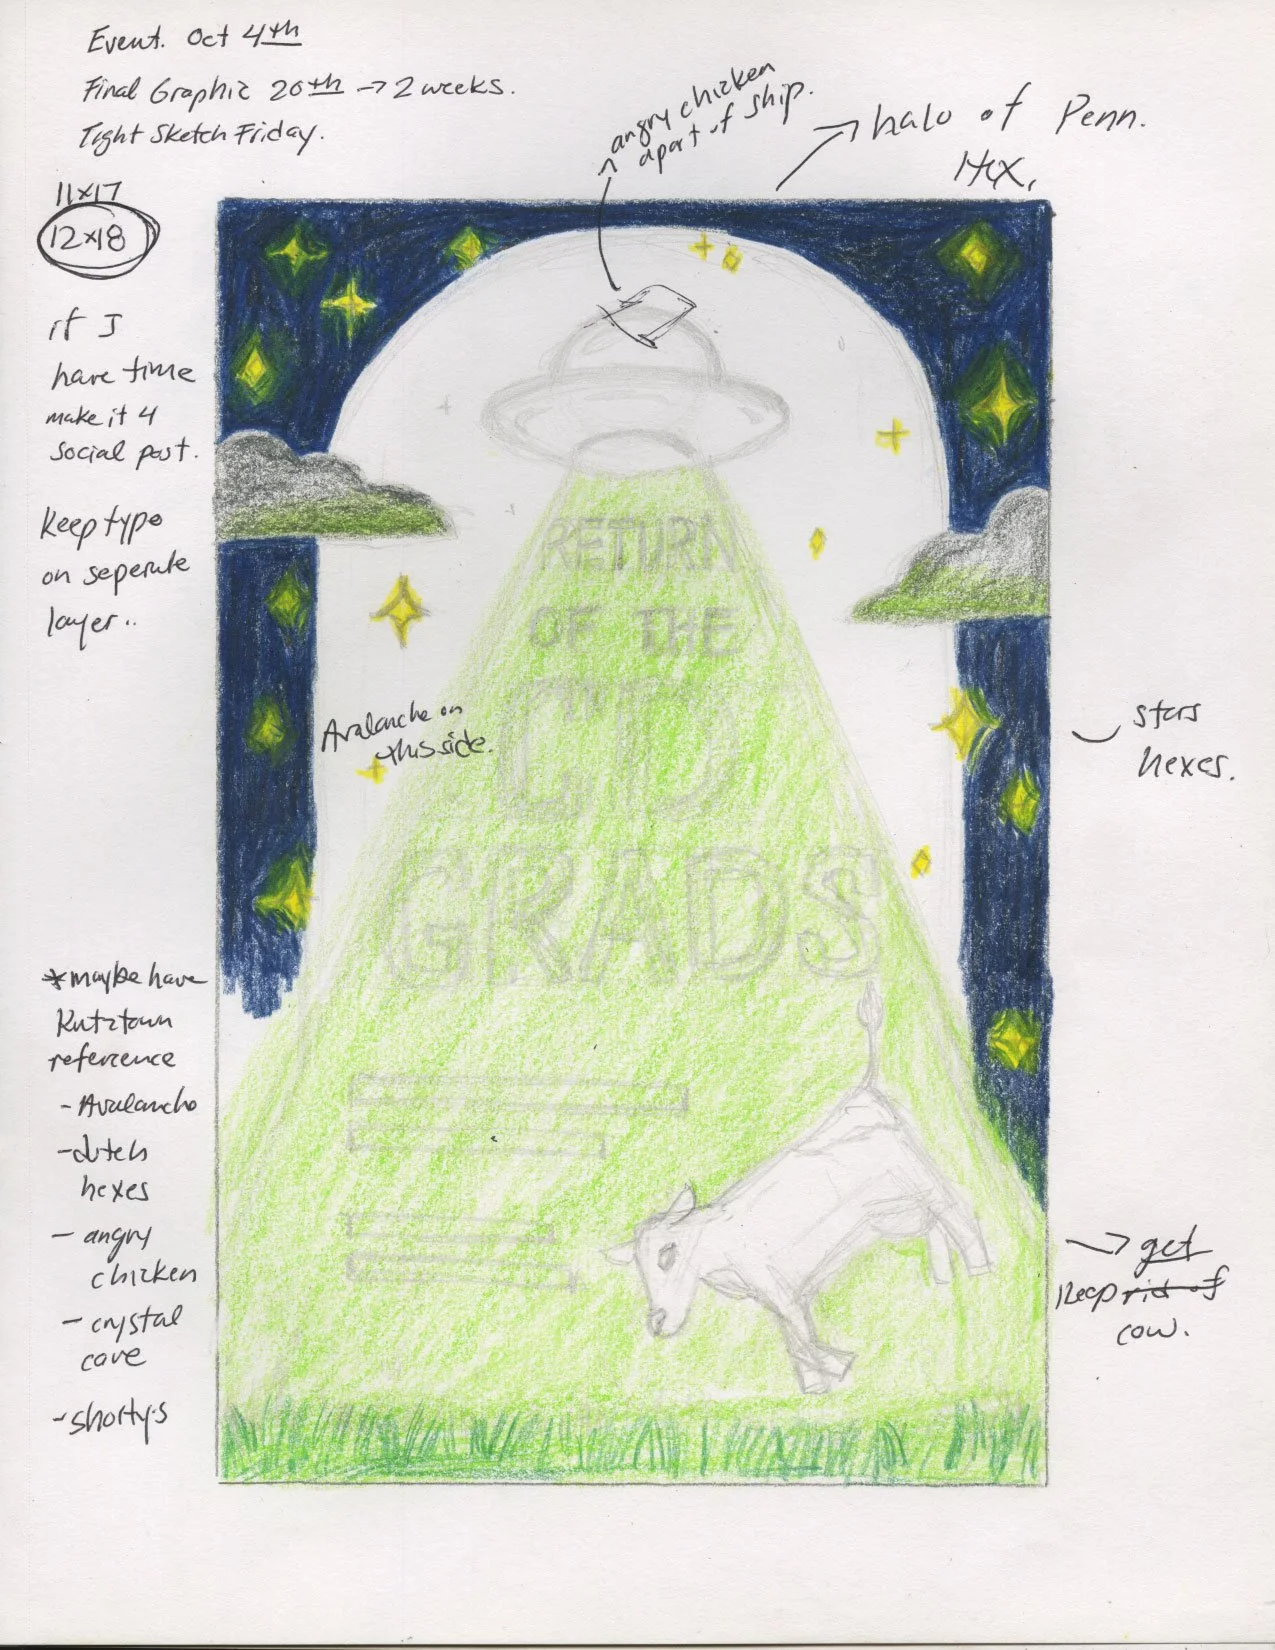 Event. Oct 4th
Final Graphic 20th → 2 weeks.
Tight Sketch Friday.
11x17
12x18
if I
have time
make it 4
social post.
Keep type
on seperate
layer..
*maybe have
Kutztown
reference
- Avalancho
- dutch
hexes
- angry
chicken
- crystal
cave
- shorty's
angry chicken
apart of ship.
→ halo of Penn.
Hex.
RETURN
OF THE
CD
GRADS
Avalanche on
this side.
stars
hexes.
→ get
Keep rid of
cow.